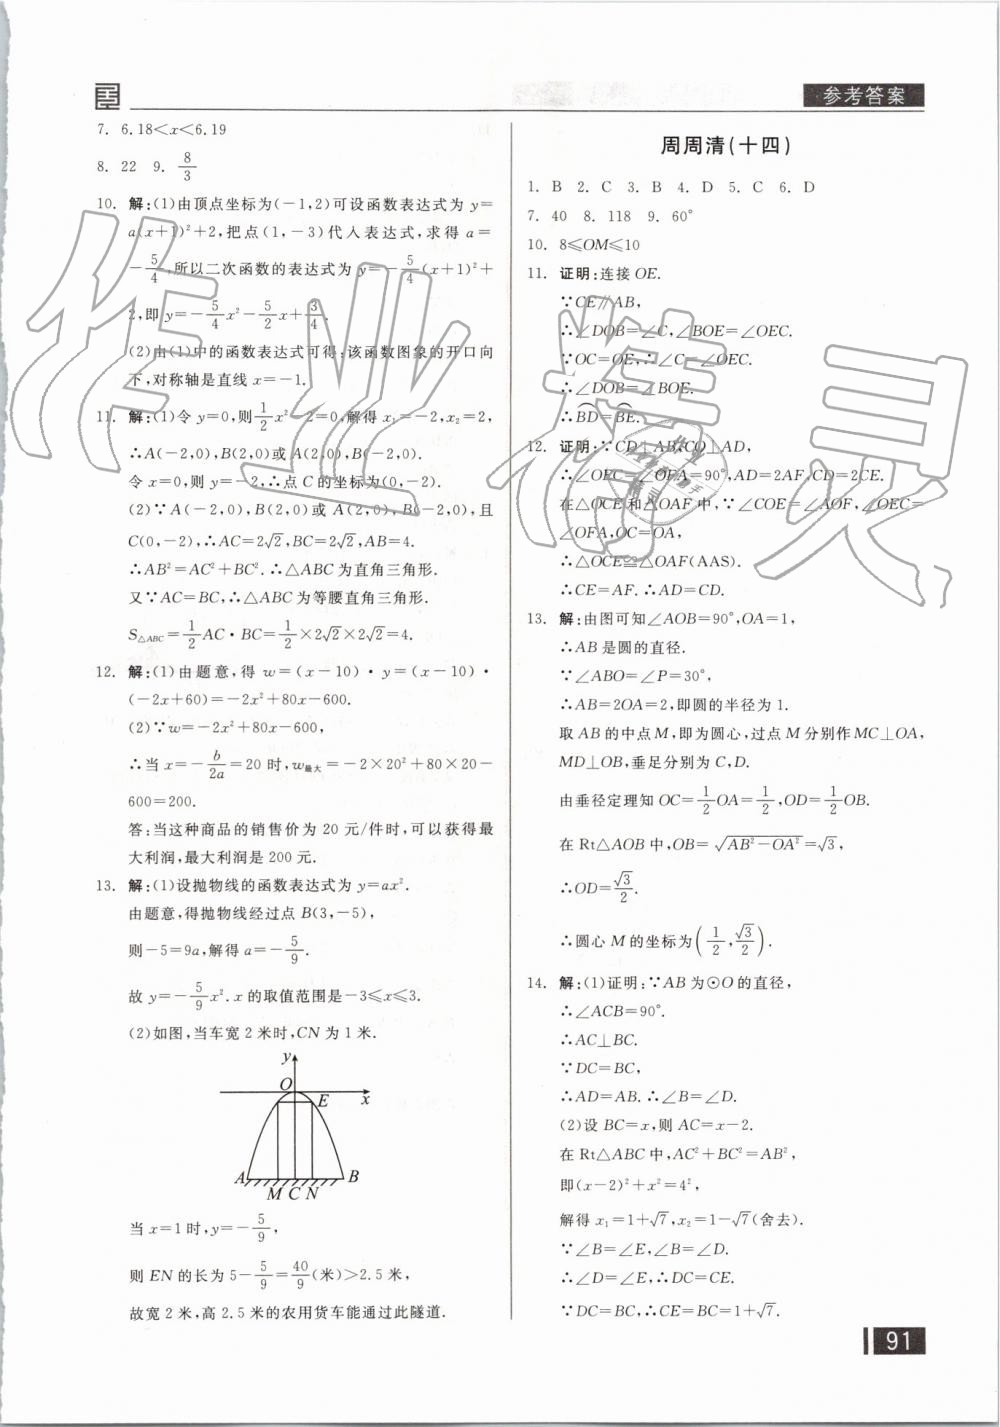 参考答案
7. 6.18<x<6.19
8. 22 9. 8/3
10. 解:(1)由顶点坐标为(-1,2)可设函数表达式为 y=
a(x+1)²+2,把点(1,-3)代入表达式,求得 a=
-5/4,所以二次函数的表达式为 y=-5/4(x+1)²+
2,即 y=-5/4x²-5/2x+3/4.
(2)由(1)中的函数表达式可得:该函数图象的开口向
下,对称轴是直线 x=-1.
11. 解:(1)令 y=0,则1/2x²-2=0,解得 x₁=-2,x₂=2,
∴A(-2,0),B(2,0)或 A(2,0),B(-2,0).
令 x=0,则 y=-2,∴点 C的坐标为(0,-2).
(2)∵A(-2,0),B(2,0)或 A(2,0),B(-2,0),且
C(0,-2),∴AC=2√2,BC=2√2,AB=4.
∴AB²=AC²+BC².∴△ABC为直角三角形.
又∵AC=BC,∴△ABC为等腰直角三角形.
S△ABC=1/2AC·BC=1/2×2√2×2√2=4.
12. 解:(1)由题意,得 w=(x-10)·y=(x-10)·
(-2x+60)=-2x²+80x-600.
(2)∵w=-2x²+80x-600,
∴当 x=-b/2a=20 时,w最大=-2×20²+80×20-
600=200.
答:当这种商品的销售价为 20 元/件时,可以获得最
大利润,最大利润是 200 元.
13. 解:(1)设抛物线的函数表达式为 y=ax².
由题意,得抛物线经过点 B(3,-5),
则-5=9a,解得 a=-5/9.
故 y=-5/9x².x 的取值范围是-3≤x≤3.
(2)如图,当车宽 2 米时,CN 为 1 米.
y
O
E
x
A
B
M C N
当 x=1 时,y=-5/9,
则 EN 的长为 5-5/9=40/9(米)>2.5 米,
故宽 2 米,高 2.5 米的农用货车能通过此隧道.
周周清(十四)
1. B 2. C 3. B 4. D 5. C 6. D
7. 40 8. 118 9. 60°
10. 8≤OM≤10
11. 证明:连接 OE.
∵CE∥AB,
∴∠DOB=∠C,∠BOE=∠OEC.
∵OC=OE,∴∠C=∠OEC.
∴∠DOB=∠BOE.
∴BD=BE.
12. 证明:∵CD⊥AB,CO⊥AD,
∴∠OEC=∠OFA=90°,AD=2AF,CD=2CE.
在△OCE 和△OAF 中,∵∠COE=∠AOF,∠OEC=
∠OFA,OC=OA,
∴△OCE≌△OAF(AAS).
∴CE=AF.∴AD=CD.
13. 解:由图可知∠AOB=90°,OA=1,
∴AB是圆的直径.
∵∠ABO=∠P=30°,
∴AB=2OA=2,即圆的半径为 1.
取 AB 的中点M,即为圆心,过点 M 分别作MC⊥OA,
MD⊥OB,垂足分别为 C,D.
由垂径定理知 OC=1/2OA=1/2,OD=1/2OB.
在 Rt△AOB 中,OB=√(AB²-OA²)=√3,
∴OD=√3/2.
∴圆心 M 的坐标为(1/2,√3/2).
14. 解:(1)证明:∵AB 为⊙O 的直径,
∴∠ACB=90°.
∴AC⊥BC.
∵DC=BC,
∴AD=AB.∴∠B=∠D.
(2)设 BC=x,则 AC=x-2.
在 Rt△ABC 中,AC²+BC²=AB²,
即(x-2)²+x²=4²,
解得 x₁=1+√7,x₂=1-√7(舍去).
∵∠B=∠E,∠B=∠D.
∴∠D=∠E,∴DC=CE.
∵DC=BC,∴CE=BC=1+√7.
91
作业精灵